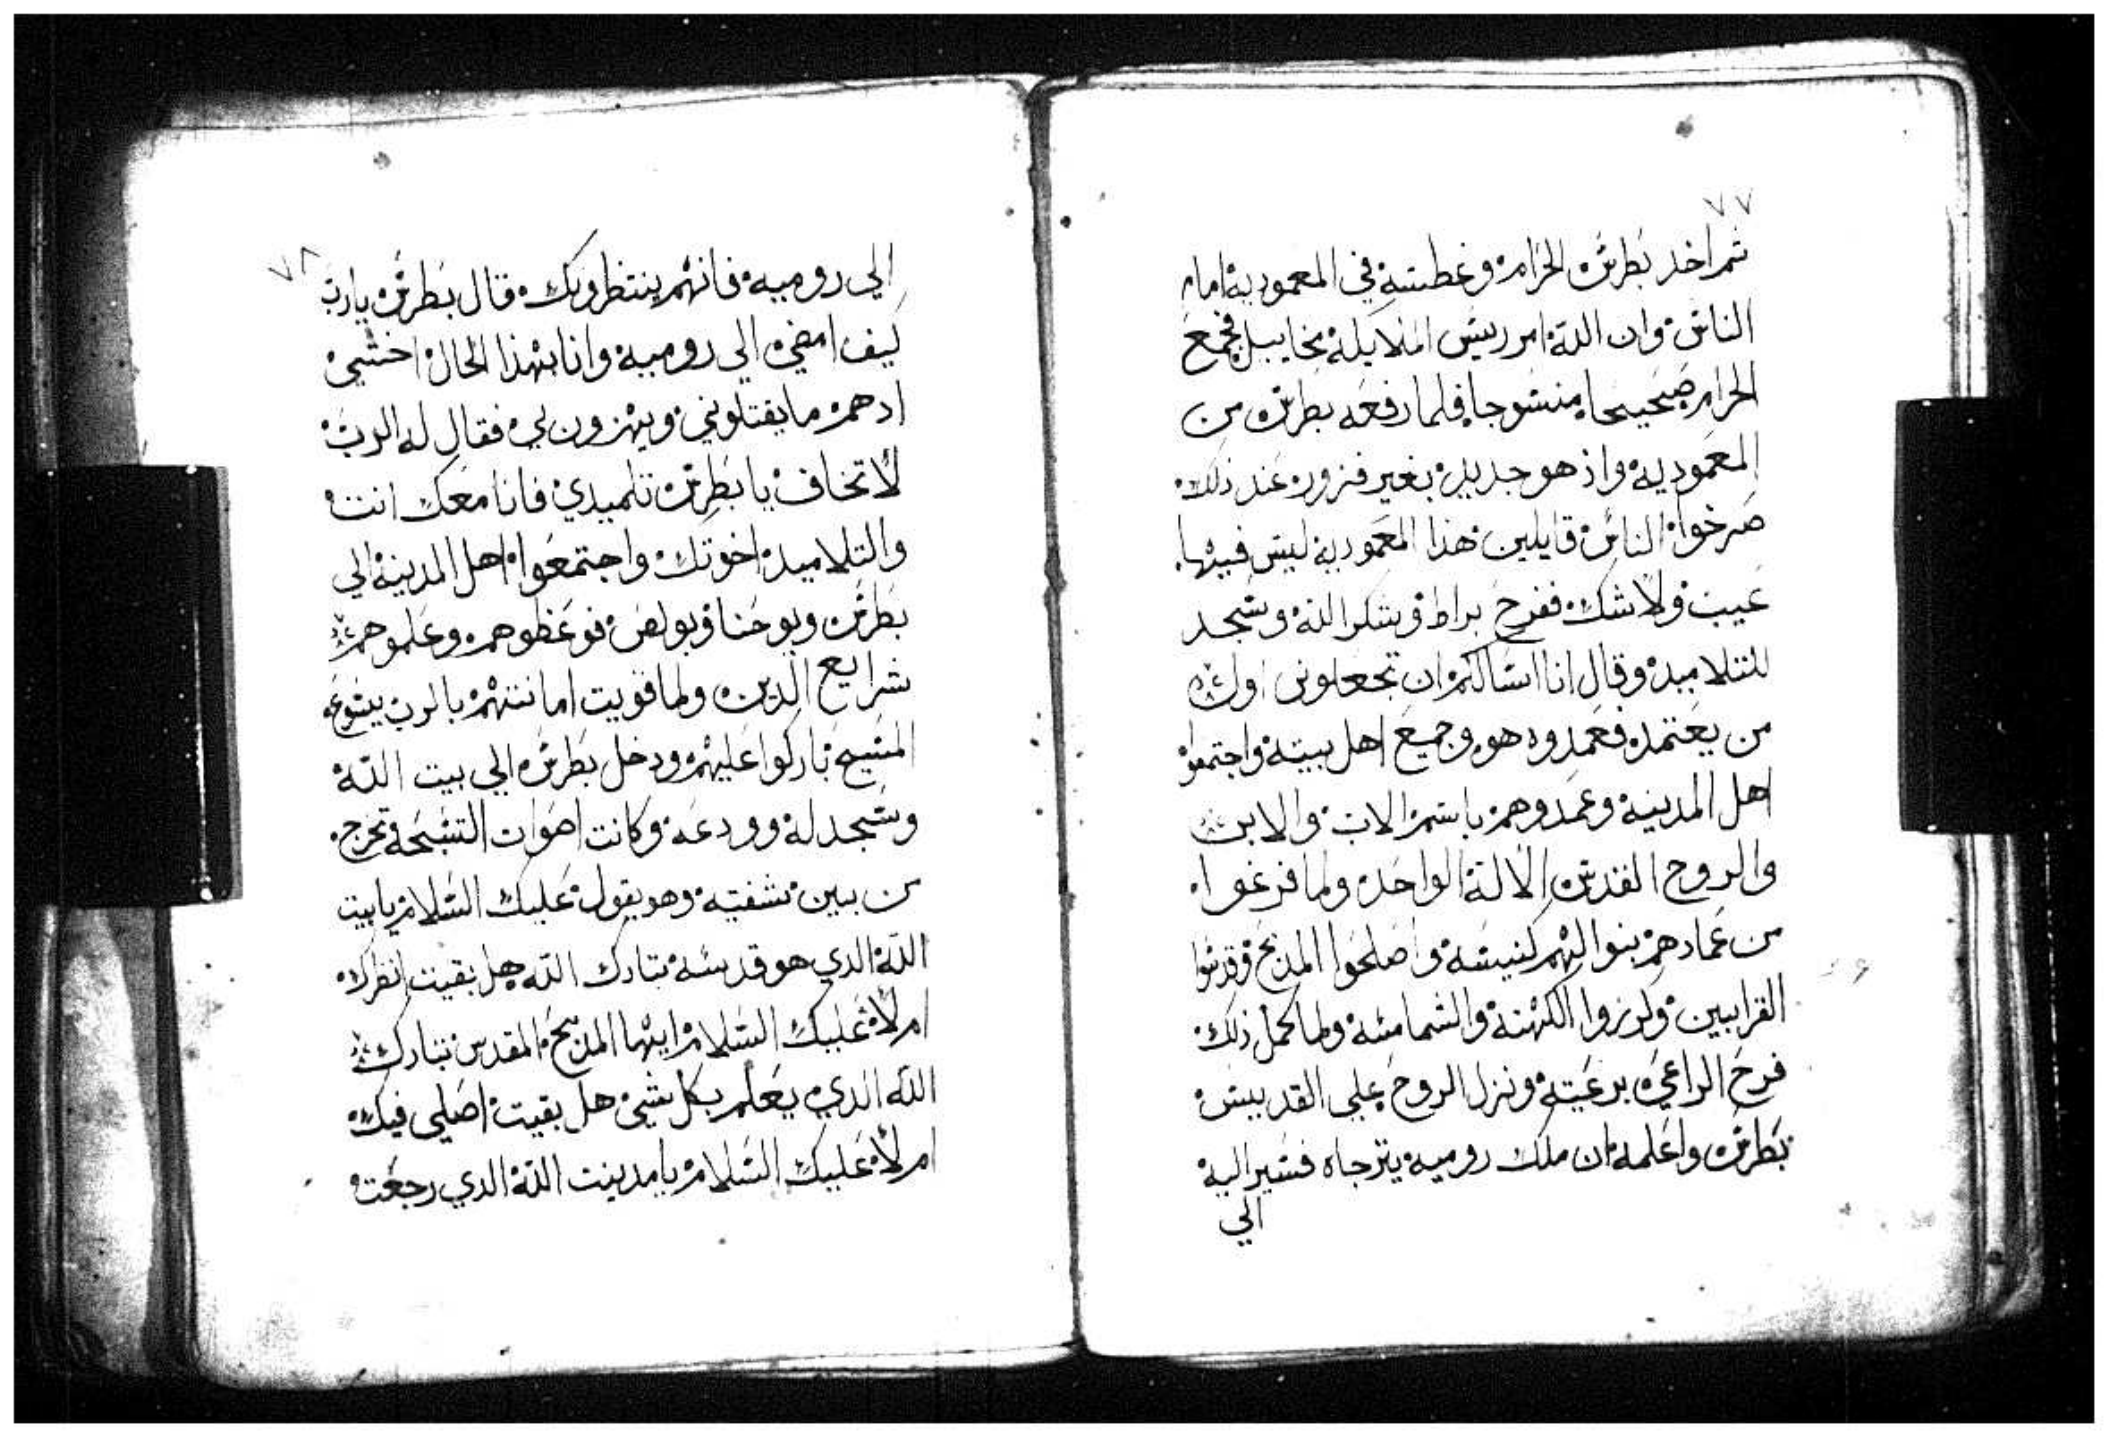 ٧٧
ثم اخد بطرس الحزام وغطسة في المعمودية امام
الناس وان الله امر رييس الملايكة مخاييل فجمع
الحزام صحيحا منسوجا فلما رفعه بطرس من
المعمودية واذ هو جديد بغير فزور عند ذلك
صرخوا الناس قايلين هذا المعمودية ليس فيها
عيب ولا شك ففرح براط وشكر الله وسجد
للتلاميد وقال انا اسالكم ان تجعلوني اول
من يعتمد فعمدوه هو وجميع اهل بيتة واجتمعوا
اهل المدينة وعمدوهم باسم الاب والابن
والروح القدس الالة الواحد ولما فرغوا
من عمادهم بنوا لهم كنيسة واصلحوا المدبح وقدسوا
القرابين وكرزوا الكهنة والشمامسة ولما كمل ذلك
فرح الراعي برعيتة ونزل الروح علي القديس
بطرس واعلمه ان ملك رومية يترجاه فسير الية
الي
٧٨
الي رومية فانهم ينتظرونك قال بطرس يارب
كيف امضي الي رومية وانا بهذا الحال اخشي
ادهم ما يقتلوني ويهزون لي فقال له الرب
لا تخاف يا بطرس تلميدي فانا معك انت
والتلاميد اخوتك واجتمعوا اهل المدينة الي
بطرس ويوحنا وبولص فوعظوهم وعلموهم
شرايع الدين ولما قويت امانتهم بالرب يسوع
المسيح باركوا عليهم ودخل بطرس الي بيت الله
وسجد لة وودعه وكانت اصوات التسبحة تخرج
من بين شفتيه وهو يقول عليك السلام يا بيت
الله الدي هو قدسة تبارك الله هل بقيت انظرك
ام لا عليك السلام ايها المدبح المقدس تبارك
الله الدي يعلم بكل شي هل بقيت اصلي فيك
ام لا عليك السلام يا مدينت الله الدي رجعت